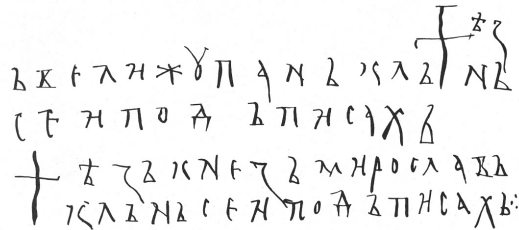 † ѣз
ь велижꙋпань кль нь
се и подь писахь
† ѣзь кнезь мирославь
кльнь се и подь писахь ⁘